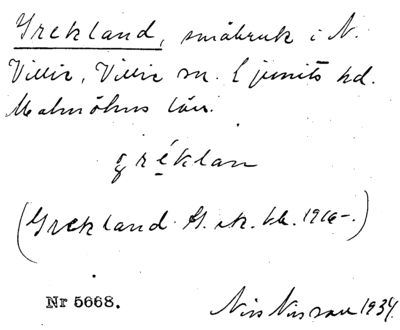 Grekland, småbruk i N.
Villie, Villie sn. Ljunits hd.
Malmöhus län.
gréklan
(Grekland G. sk. bl. 1916-.)
Nr 5668.
Nils Nilsson 1934.